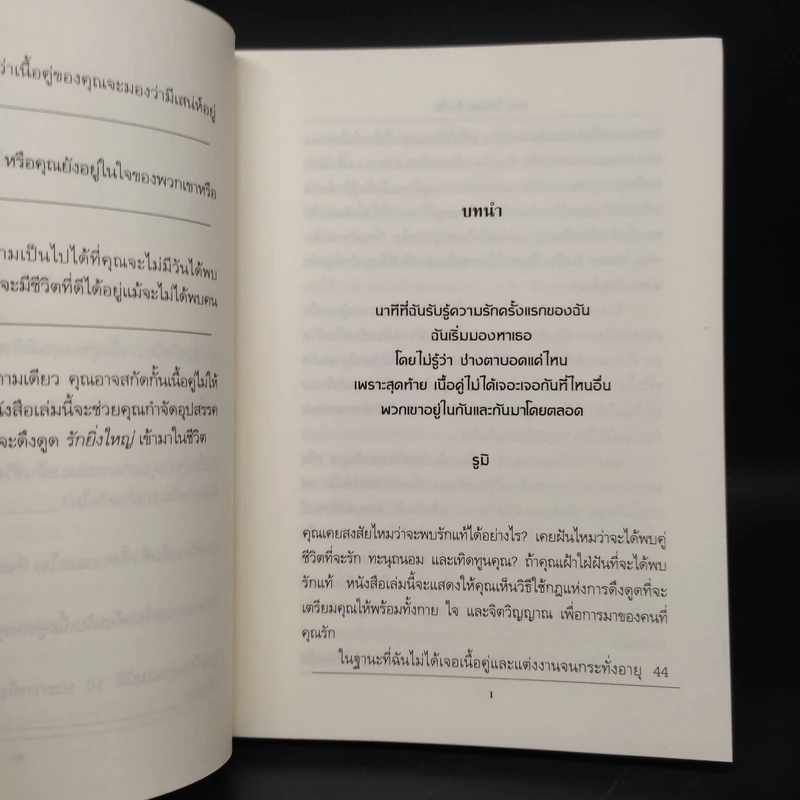 ว่าเนื้อคู่ของคุณจะมองว่ามีเสน่ห์อยู่
หรือคุณยังอยู่ในใจของพวกเขาหรือ
ามเป็นไปได้ที่คุณจะไม่มีวันได้พบ
จะมีชีวิตที่ดีได้อยู่แม้จะไม่ได้พบคน
ถามเดียว คุณอาจสกัดกั้นเนื้อคู่ไม่ให้
นังสือเล่มนี้จะช่วยคุณกำจัดอุปสรรค
จะดึงดูด รักยิ่งใหญ่ เข้ามาในชีวิต
บทนำ
นาทีที่ฉันรับรู้ความรักครั้งแรกของฉัน
ฉันเริ่มมองหาเธอ
โดยไม่รู้ว่า ช่างตาบอดแค่ไหน
เพราะสุดท้าย เนื้อคู่ไม่ได้เจอะเจอกันที่ไหนอื่น
พวกเขาอยู่ในกันและกันมาโดยตลอด
รูมิ
คุณเคยสงสัยไหมว่าจะพบรักแท้ได้อย่างไร? เคยฝันไหมว่าจะได้พบคู่
ชีวิตที่จะรัก ทะนุถนอม และเทิดทูนคุณ? ถ้าคุณเฝ้าใฝ่ฝันที่จะได้พบ
รักแท้ หนังสือเล่มนี้จะแสดงให้คุณเห็นวิธีใช้กฎแห่งการดึงดูดที่จะ
เตรียมคุณให้พร้อมทั้งกาย ใจ และจิตวิญญาณ เพื่อการมาของคนที่
คุณรัก
ในฐานะที่ฉันไม่ได้เจอเนื้อคู่และแต่งงานจนกระทั่งอายุ 44
1